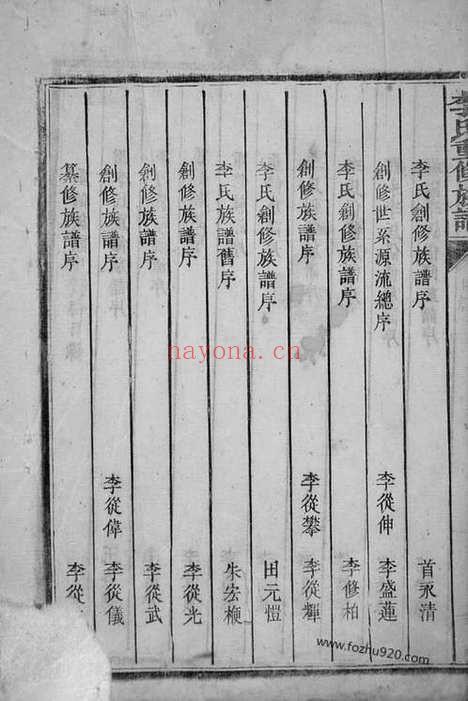 李氏重修族譜
李氏創修族譜序 首永清
創修世系源流總序 李從伸 李盛蓮
李氏創修族譜序 李修柏
創修族譜序 李從攀 李從輝
李氏創修族譜序 田元愷
李氏族譜舊序 朱宏楩
創修族譜序 李從光
創修族譜序 李從武
創修族譜序 李從偉 李從儀
纂修族譜序 李從
hayona.cn
www.fozhu920.com